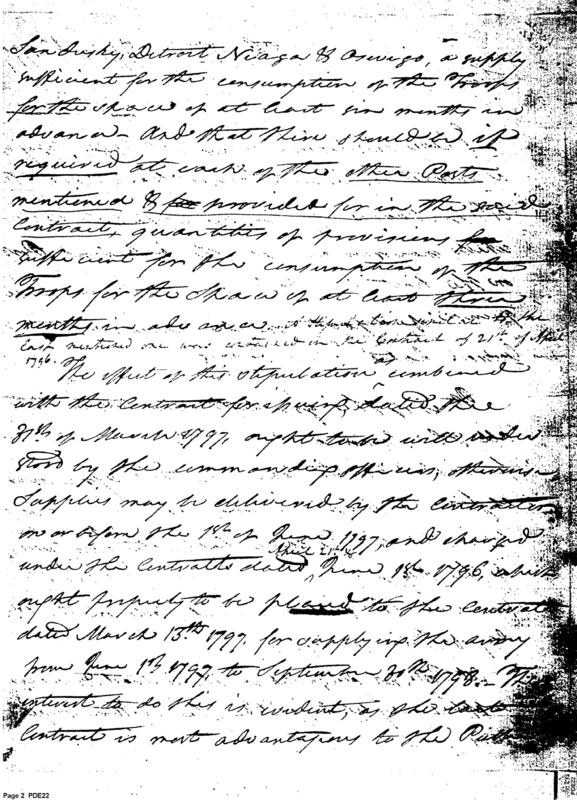 Sandusky, Detroit Niaga & Oswigo, a supply
sufficient for the consumption of the Troops
for the space of at least six months in
advance - And that there should be if
required at each of the other Posts
mentioned & for provided for in the said
Contract, quantities of provisions
sufficient for the consumption of the
Troops for the space of at least three
months in advance. A stipulation to the
last mentioned one was contained in the Contract of 21st of April
1796.
The effect of this stipulation combined
with the Contract for dated the
of March 1797, ought to be well under
stood by the commanding officers, otherwise
Supplies may be delivered by the Contractor
on or before the 1st of June 1797, and charged
under the Contracts dated June 1st 1796, which
April 21st &
ought properly to be placed to the contract
dated March 13th 1797 for supplying the army
from June 1st 1797 to September 30th 1798. - The
interest to do this is evident, as the
Contract is most advantagious to the
Page 2 PDE22
PDE22